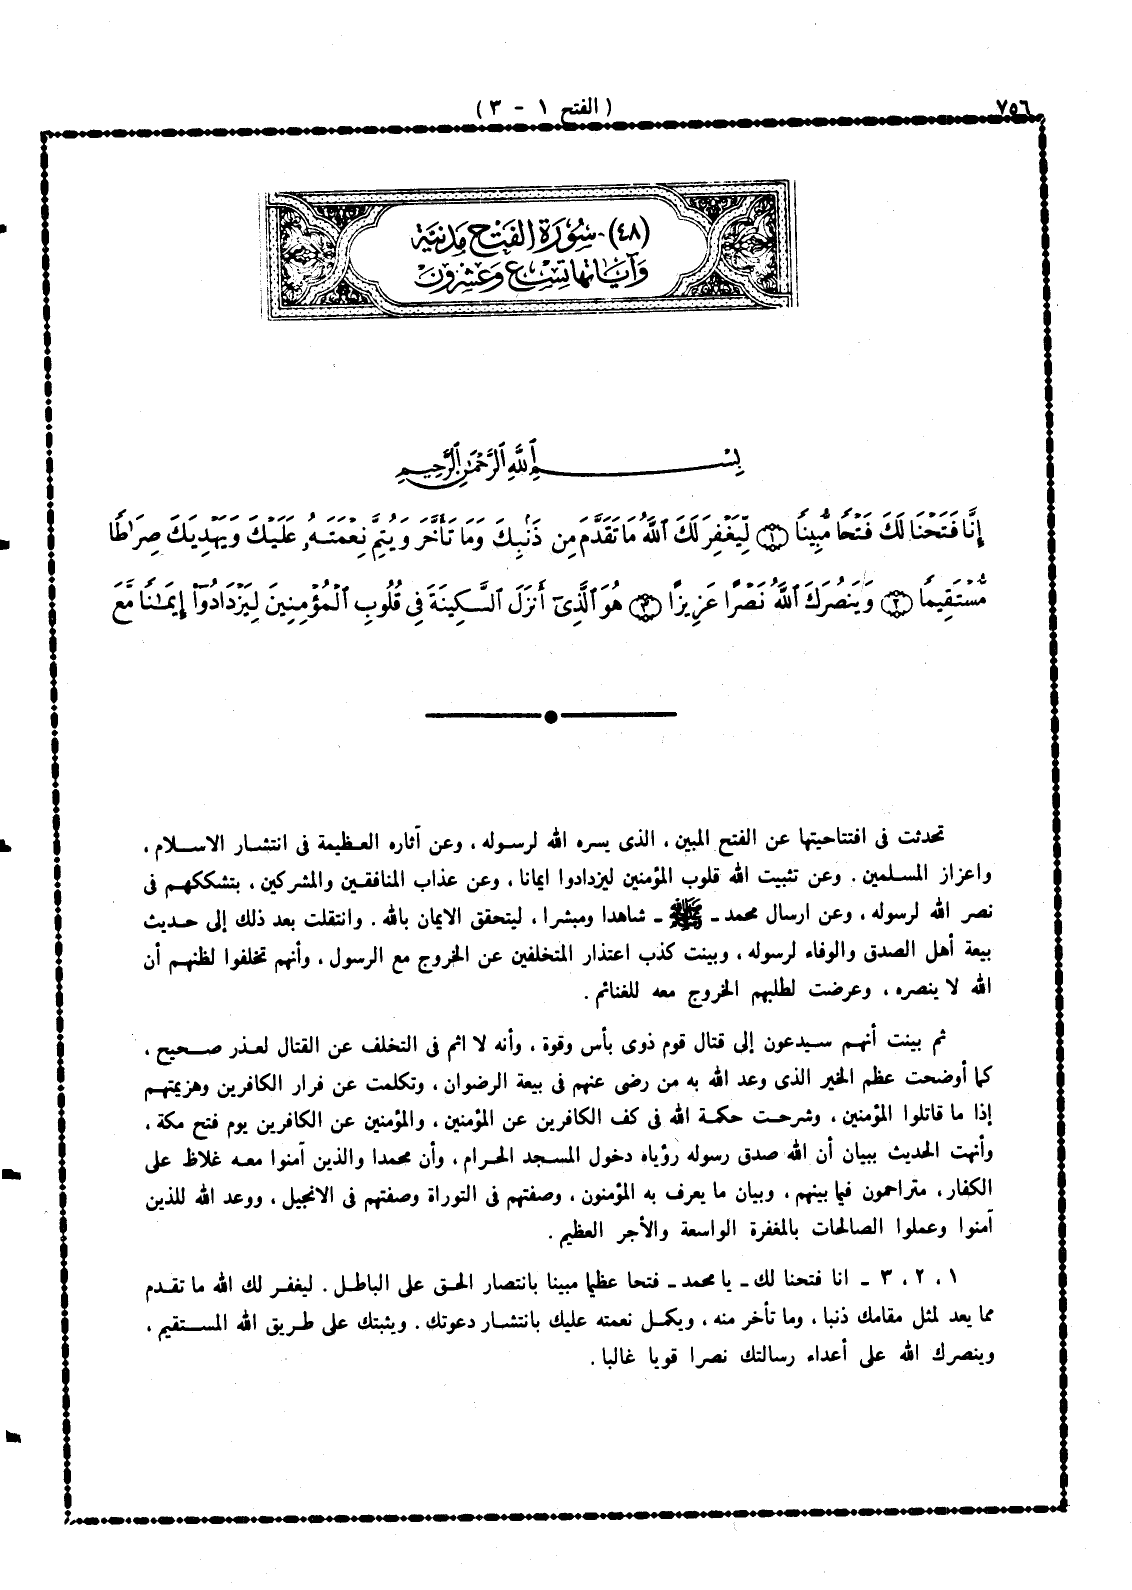 ٧٥٦
( الفتح ١ - ٣ )
(٤٨) - سُورَة الفَتْح مَدنيَّة
وَآيَاتهَا تِسْع وَعشرون
بِسْمِ اللَّهِ الرَّحْمَٰنِ الرَّحِيمِ
إِنَّا فَتَحْنَا لَكَ فَتْحًا مُّبِينًا ۝١ لِّيَغْفِرَ لَكَ ٱللَّهُ مَا تَقَدَّمَ مِن ذَنۢبِكَ وَمَا تَأَخَّرَ وَيُتِمَّ نِعْمَتَهُۥ عَلَيْكَ وَيَهْدِيَكَ صِرَٰطًا
مُّسْتَقِيمًا ۝٢ وَيَنصُرَكَ ٱللَّهُ نَصْرًا عَزِيزًا ۝٣ هُوَ ٱلَّذِىٓ أَنزَلَ ٱلسَّكِينَةَ فِى قُلُوبِ ٱلْمُؤْمِنِينَ لِيَزْدَادُوٓا۟ إِيمَٰنًا مَّعَ
تحدثت فى افتتاحيتها عن الفتح المبين ، الذى يسره الله لرسوله ، وعن آثاره العظيمة فى انتشار الاسلام ،
واعزاز المسلمين . وعن تثبيت الله قلوب المؤمنين ليزدادوا ايمانا ، وعن عذاب المنافقين والمشركين ، بتشككهم فى
نصر الله لرسوله ، وعن ارسال محمد ـ ﷺ ـ شاهدا ومبشرا ، ليتحقق الايمان بالله . وانتقلت بعد ذلك إلى حديث
بيعة أهل الصدق والوفاء لرسوله ، وبينت كذب اعتذار المتخلفين عن الخروج مع الرسول ، وأنهم تخلفوا لظنهم أن
الله لا ينصره ، وعرضت لطلبهم الخروج معه للغنائم .
ثم بينت أنهم سيدعون إلى قتال قوم ذوى بأس وقوة ، وأنه لا اثم فى التخلف عن القتال لعذر صحيح ،
كما أوضحت عظم الخير الذى وعد الله به من رضى عنهم فى بيعة الرضوان ، وتكلمت عن فرار الكافرين وهزيمتهم
إذا ما قاتلوا المؤمنين ، وشرحت حكمة الله فى كف الكافرين عن المؤمنين ، والمؤمنين عن الكافرين يوم فتح مكة ،
وأنهت الحديث ببيان أن الله صدق رسوله رؤياه دخول المسجد الحرام ، وأن محمدا والذين آمنوا معه غلاظ على
الكفار ، متراحمون فيما بينهم ، وبيان ما يعرف به المؤمنون ، وصفتهم فى التوراة وصفتهم فى الانجيل ، ووعد الله للذين
آمنوا وعملوا الصالحات بالمغفرة الواسعة والأجر العظيم .
١ ، ٢ ، ٣ ـ انا فتحنا لك ـ يا محمد ـ فتحا عظيما مبينا بانتصار الحق على الباطل . ليغفر لك الله ما تقدم
مما يعد لمثل مقامك ذنبا ، وما تأخر منه ، ويكمل نعمته عليك بانتشار دعوتك . ويثبتك على طريق الله المستقيم ،
وينصرك الله على أعداء رسالتك نصرا قويا غالبا .